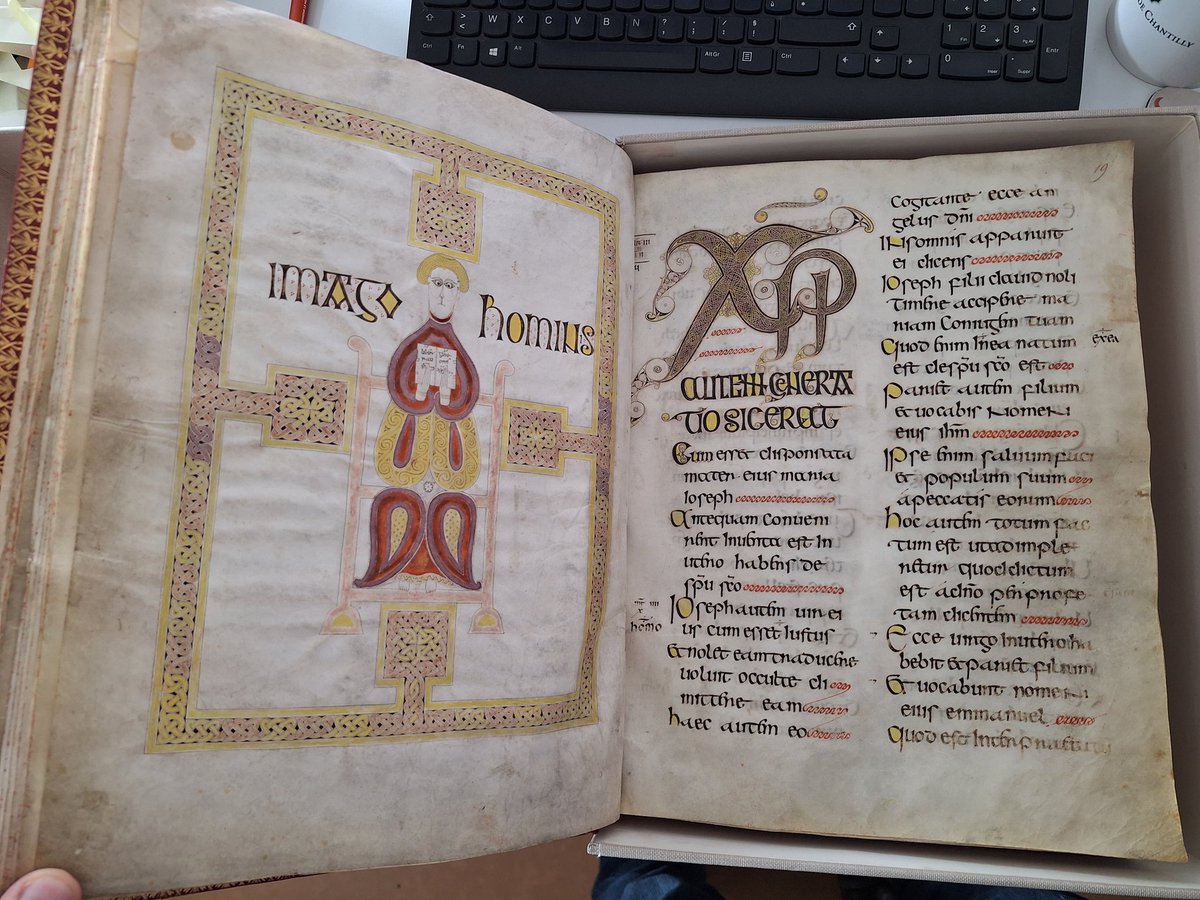 W X C V B N
Ctrl Fn Alt AltGr Ctrl
1 2 3
0
Entr
DE CHANTILLY
IMAGO HOMINIS
19
XPI
AUTEM GENERA
TIO SIC ERAT
Cum esset disponsata
mater eius maria
Ioseph
Antequam conuen
irent inuenta est in
utero habens de
sp̄u s̄c̄o
Ioseph autem uir ei
us cum esset iustus
et nolet eam traducere
uoluit occulte di
mittere eam
haec autem eo
homo
cogitante ecce an
gelus dn̄i
In somnis apparuit
ei dicens
Ioseph filii dauid noli
timere accipere ma
riam coniugem tuam
Quod enim in ea natum
est de sp̄u s̄c̄o est
Pariet autem filium
et uocabis nomen
eius ih̄m
Ipse enim saluum faci
et populum suum
a peccatis eorum
hoc autem totum fac
tum est ut adimple
retur quod dictum
est a dn̄o per profe
tam dicentem
Ecce uirgo in utero ha
bebit et pariet filium
Et uocabunt nomen
eius emmanuel
quod est